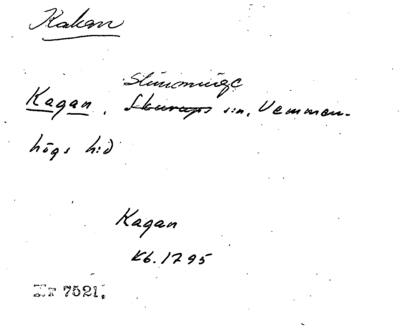 Kakan
Slimminge
Kagan, Skurups s:n, Vemmen-
högs h:d
Kagan
Kb. 1795
Nr 7521.